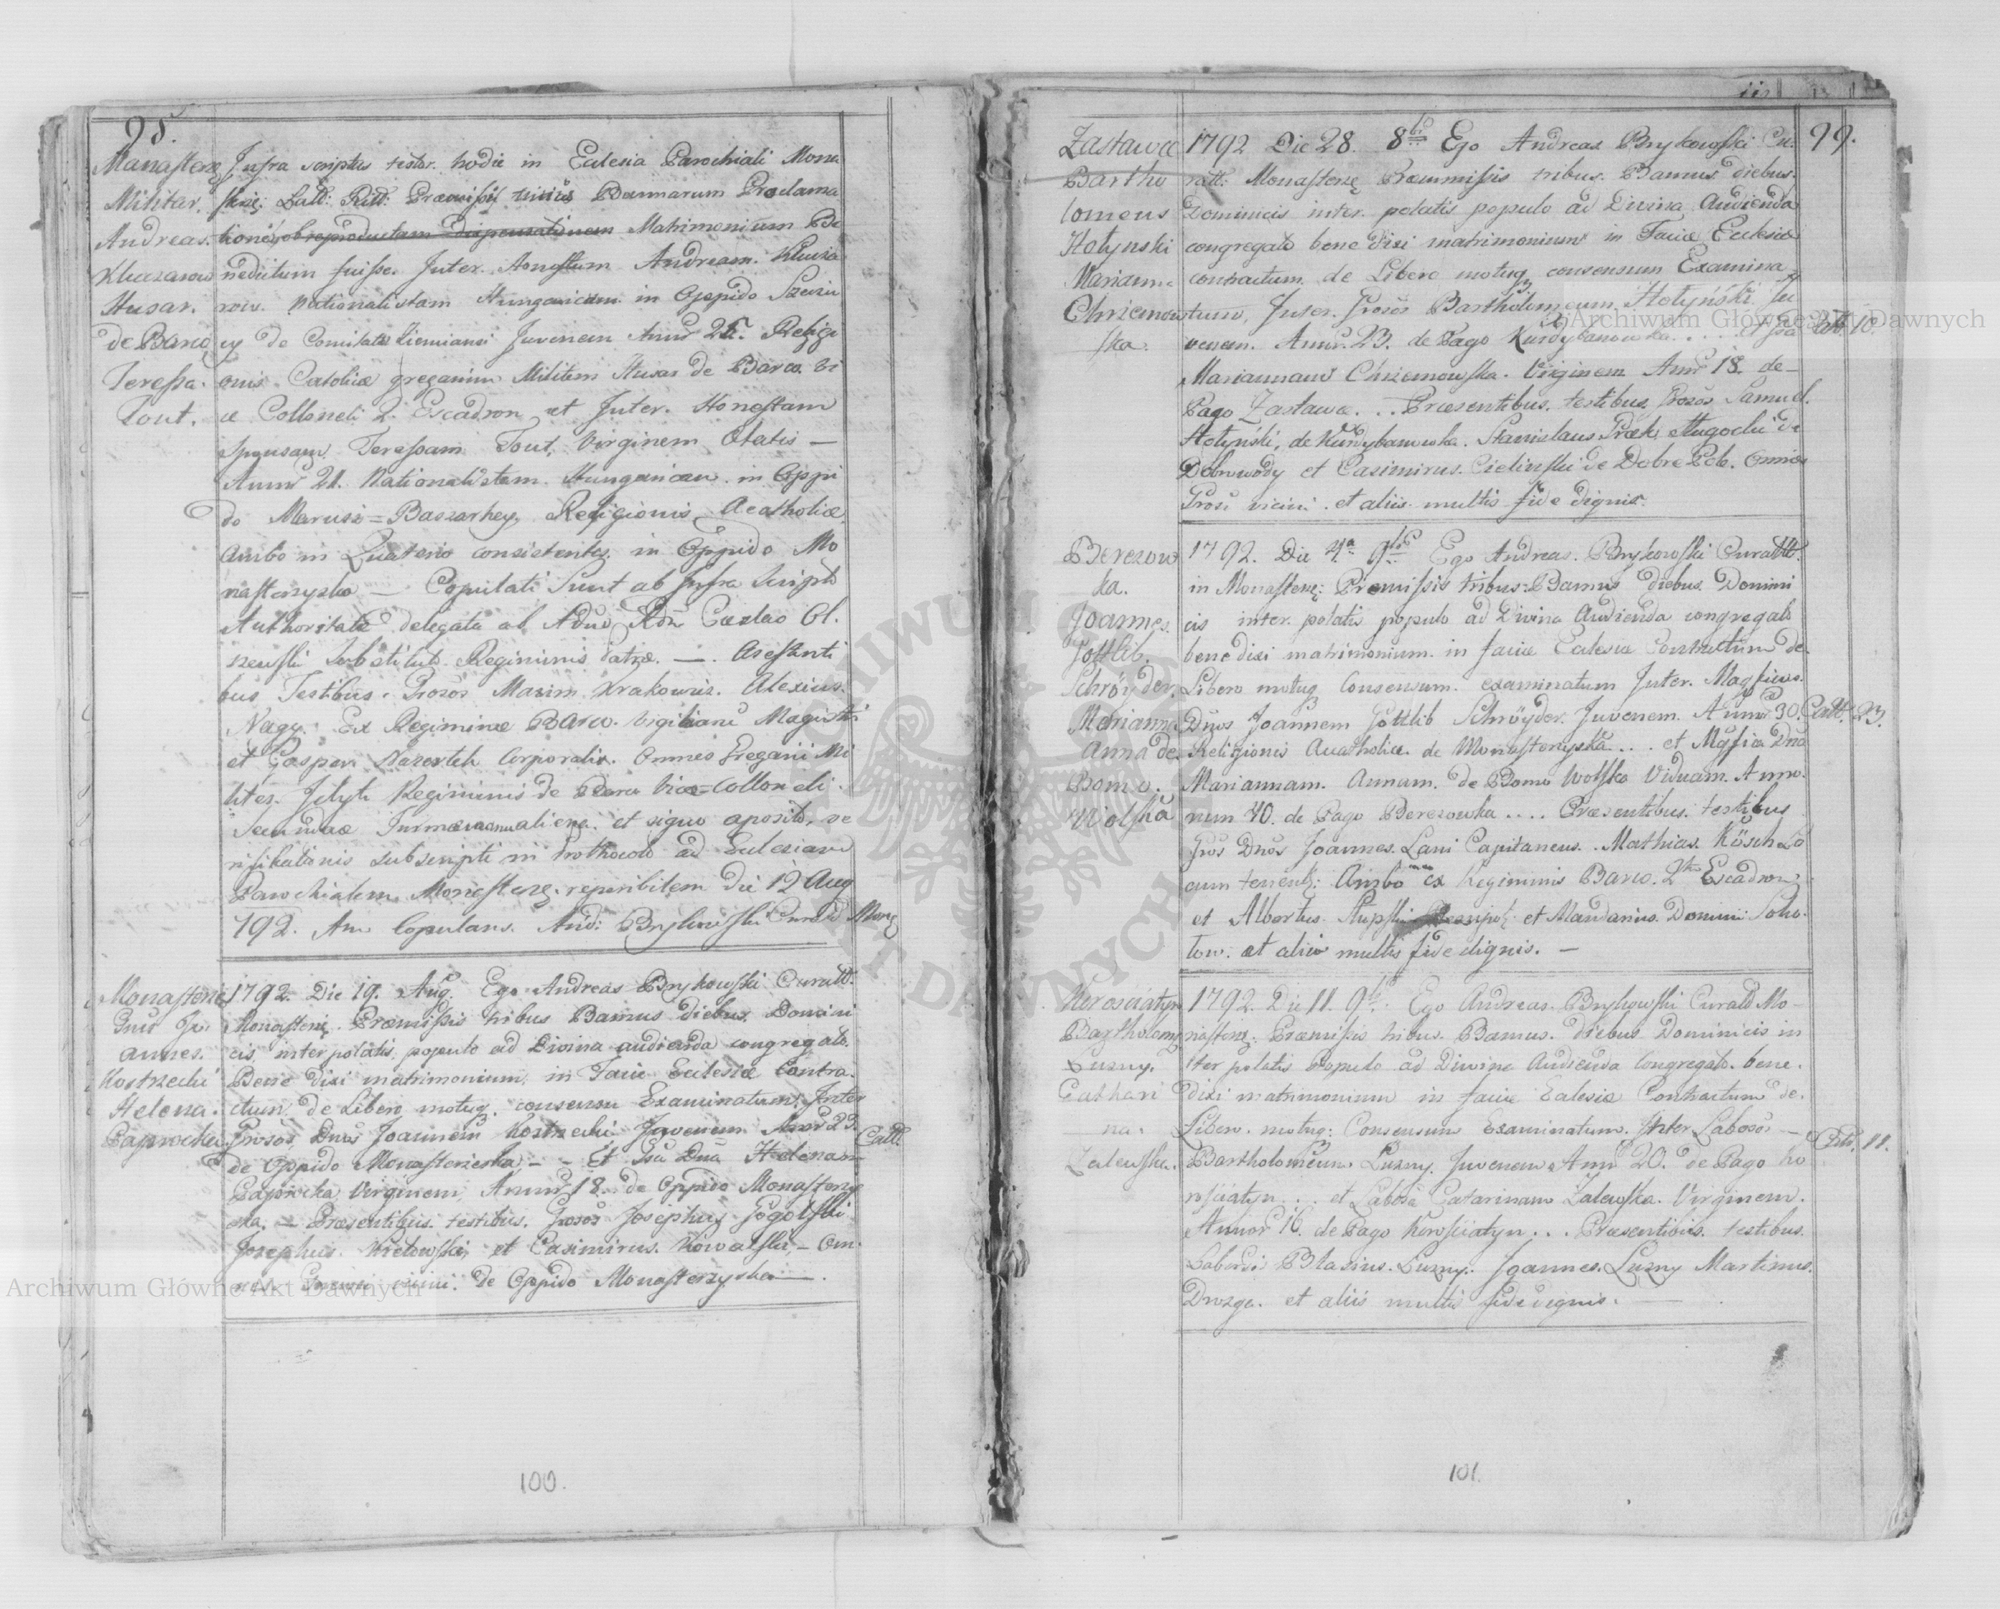 95.
Manasterz
Militar.
Andreas.
Kluczarow
Husar.
de Barco
Teressa.
Tout.
Infra scriptus testor. hodie in Eclesia Parochiali Mona
sterz: Latt: Ritt: Præmissis trinis Bannarum Proclama
tionis, ob reproductam dispensationem Matrimonium Be
nedictum fuisse. Inter. Honestum Andream. Klucza
row. Nationalistam Hungaricum in Oppido
ey de Comitatu Juvenem Annor 25. Religi
onis Catolicæ gregarium Militem Husar de Barco. Vi
ce Colloneli 2. Escadron et Inter. Honestam
sponsam Teressam Tout, Virginem Etatis —
Annor 21. Nationalistam. Hungaricam in Oppi
do Marusz=Baszarhey, Religionis Acatholicæ
Ambo in Quaterio consistentes in Oppido Mo
nasterzyska — Copulati Sunt ab Infra Scripto
Authoritate delegata ab Adm. Rdn Ol.
szewski Substituto Regiminis — . Asestanti
bus Testibus. Maxim. Krakowis. Alexius.
Nagy. Ex Regimine Barco. Magistri
et Gasper Corporalis. Omnes Gregarii Mi
lites. Regiminis de Barco Vice=Colloneli.
Secundæ Turmæ et signo aposito. ve
rifikationis subscripti in Prothocolo ad Eclesiam
Parochialem Monasterz: reperibilem die 12 Aug
792. Am Copulans. And: Brykowski Curatt Monas
Monasterz
Dnus Jo
annes.
Kostrzecki
Helena.
1792. Die 19. Aug. Ego Andreas Brykowski Curatt.
Monasterz. Præmissis tribus Bannis diebus Domini
cis interpolatis populo ad Divina audienda congregato
Bene dixi matrimonium in Facie Eclesiæ Contra
ctum. de Libero motuq. consensu Examinatum. Inter
Grosos Dnus Joannem Kostrzecki Juvenem Annor 23.
de Oppido Monasterzeska — — Et Gsa Dna Helenam
Virginem Annor 18. de Oppido Monasterzy
ska. — Præsentibus testibus. Grosos Josephus Gogolski
Josephus. et Casimirus. Kowalski — Om
nes vicini. de Oppido Monasterzyska — .
Catt.
100.
99.
Zastawce
Bartho
lomeus
Hołynski
Marianna
Chrzanow
ska.
1792 Die 28. 8bris Ego Andreas Brykowski Cu
ratt: Monasterz Præmmissis tribus. Bannis diebus.
Dominicis inter. polatis populo ad Divina Audienda
congregato bene dixi matrimonium in Facie Eclesiæ
contractum. de Libero motuq consensum Examina
tum, Inter. Grosos Bartholomeum. Hołyński Ju
venem. Annor. 23. de Pago Kurdybanowka. . . .
Mariannam Chrzanowska. Virginem Annor 18. de —
Pago Zastawce . . . Præsentibus. testibus. Grosos Samuel.
Hołyński, de Kurdybanowka. Stanislaus
Dobrowody et Casimirus. Cielinski de Omnes
Grosi vicini. et aliis multis fide dignis.
Catt. 10.
Berezow
ka.
Joannes.
Gottlib.
Schröyder.
Marianna
Anna de
Domo.
Wolska
1792. Die 4a 9bris Ego Andreas. Brykowski Curatt.
in Monasterz: Premissis tribus Bannis diebus Domini
cis inter. polatis populo ad Divina Audienda congregato
bene dixi matrimonium in facie Eclesiæ Contractum de
Libero motuq Consensum. examinatum Inter. Magficos.
Dnos Joannem Gottlib Schröyder. Juvenem. Annor 30.
Religionis Acatholicæ de Monasterzyska. . . . et Mgfica Dna
Mariannam. Annam. de Domo Wolska Viduam. Anno
rum 40. de Pago Berezowka . . . . Præsentibus. testibus
Gsos Dnos Joannes. Capitaneus. Mathias.
Ambo ex Regiminis Barco. 2di Escadron.
et Albertus. et Mandarius. Dominii
tow. et aliis multis fide dignis. —
Catt. 23.
Korosciatyn
Bartholomy
Luzny.
Cathari
na.
Zalewska.
1792. Die 11. 9bris. Ego Andreas. Brykowski Curatt Mo
nasterz. Præmissis tribus. Bannis. diebus Dominicis in
ter polatis Populo ad Divina Audienda Congregato. bene.
dixi matrimonium in facie Eclesiæ Contractum de.
Libero. motuq: Consensum Examinatum. Inter Labosos —
Bartholomeum. Luzny. Juvenem Annor 20. de Pago Ko
rosciatyn . . . et Labosa Catarinam Zalewska. Virginem.
Annor 16. de Pago Korosciatyn . . . Præsentibus. testibus.
Labosi Blasius. Luzny. Joannes. Luzny Martinus.
Drozga. et aliis multis fide dignis. —
Catt. 11.
101.
Archiwum Główne Akt Dawnych
Archiwum Główne Akt Dawnych
ARCHIWUM GŁÓWNE AKT DAWNYCH